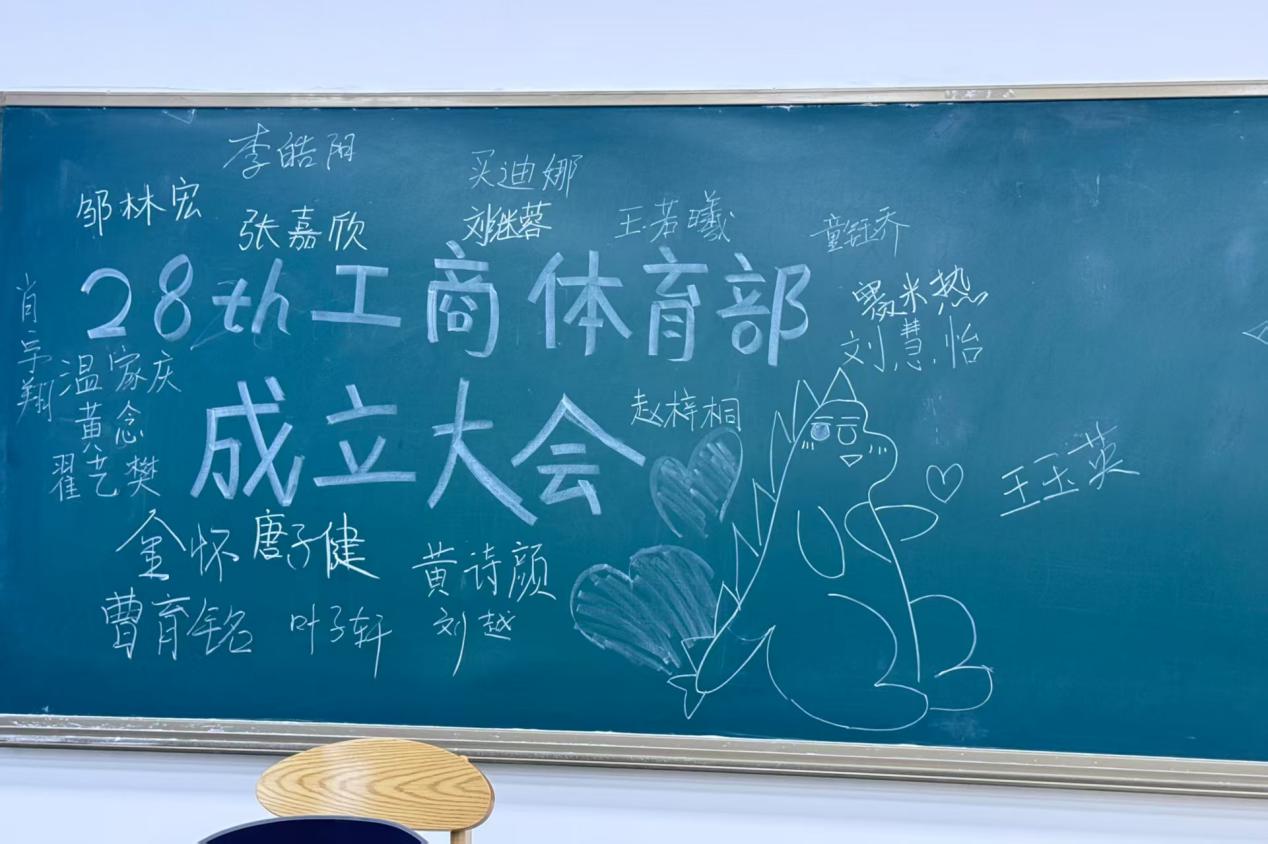 李皓阳
买迪娜
邹林宏
张嘉欣
刘继蓉
王若曦
童钰乔
28th工商体育部
米热
刘慧怡
肖宇翔
温家庆
黄念
翟艺樊
成立大会
赵梓桐
王玉英
金怀
唐子健
黄诗颜
曹育铭
叶子轩
刘越